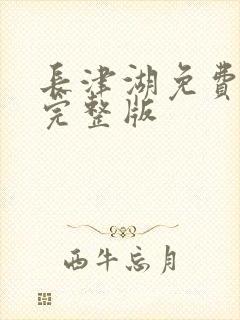 長津湖免費
完整版
西牛忘月